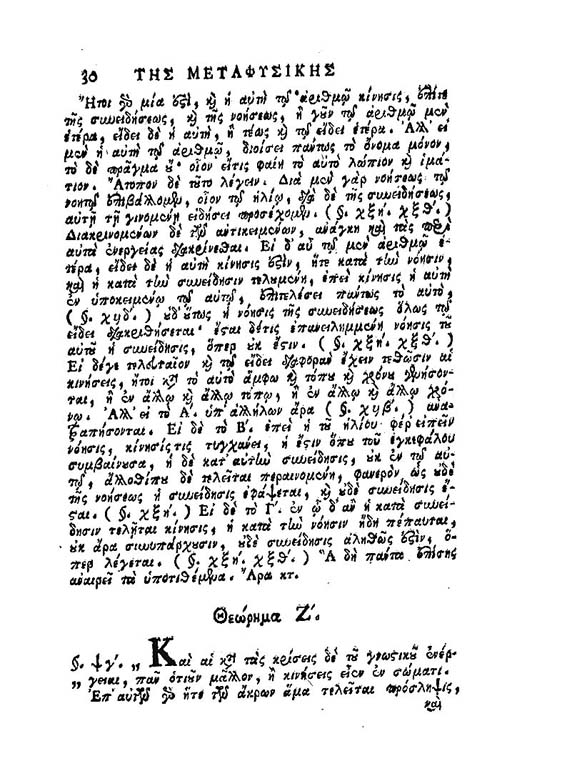 30 ΤΗΣ ΜΕΤΑΦΥΣΙΚΗΣ
Ἤτοι γὸ μία ὅτι, κỳ ἡ αὐτὴ τῷ ἀριθμῷ κίνησις, ὁπότε
τῆς συνειδήσεως, κỳ τῆς νοήσεως, ἢ γοῦν τῷ ἀριθμῷ μὲν
ἑτέρα, εἴδει δὲ ἡ αὐτὴ, ἢ τέως κỳ τῷ εἴδει ἑτέρα. Ἀλλ' εἰ
μὲν ἡ αὐτὴ τῷ ἀριθμῷ, διοίσει πάντως τὸ ὄνομα μόνον,
τὸ δὲ πρᾶγμα ȣ̓· οἷον εἴτις φαίη τὸ αὐτὸ λώπιον κỳ ἱμά-
τιον. Ἄτοπον δὲ τȣ̃το λέγειν. Διὰ μὲν γάρ νοήσεως τῷ
νοητῷ ἐπιβάλλομεν, οἷον τῷ ἡλίῳ, διὰ δὲ τῆς συνειδήσεως,
αὐτῇ τῇ γινομένῃ εἰδήσει προσέχομεν. (§. χξή. χξθ'.)
Διακρινομένων δὲ τῶν ἀντικειμένων, ἀνάγκη καὶ τὰς περὶ
αὐτὰ ἐνεργείας διακρίνεσθαι. Εἰ δ' αὖ τῷ μὲν ἀριθμῷ ἑ-
τέρα, εἴδει δὲ ἡ αὐτὴ κίνησις ἐστὶν, ἥτε κατὰ τὴν νόησιν,
καὶ ἡ κατὰ τὴν συνείδησιν τελȣμένη, ἐπεὶ κίνησις ἡ αὐτὴ
ἐν ὑποκειμένῳ τῷ αὐτῷ, ἐπιτελέσει πάντως τὸ αὐτὸ,
(§. χιδ'.) ȣ̓δ' ȣ̔́τως ἡ νόησις τῆς συνειδήσεως ὅλως τῷ
εἴδει διακριθήσεται· ἔσαι δέτις ἐπανειλημμένη νόησις τȣ̃
αὐτȣ̃ ἡ συνείδησις, ὅπερ ȣ̓κ ἔστιν. (§. χξή. χξθ'.)
Εἰ δέγε τελευταῖον κỳ τῷ εἴδει διαφορὰν ἔχειν τεθῶσιν αἱ
κινήσεις, ἤτοι κατὰ τὸ αὐτὸ ἄμφω κỳ τόπȣ κỳ χρόνȣ γενήσον-
ται, ἢ ἐν ἄλλῳ κỳ ἄλλῳ τόπῳ, ἢ ἐν ἄλλῳ κỳ ἄλλῳ χρό-
νῳ. Ἀλλ' εἰ τὸ Α. ὑπ' ἀλλήλων ἄρα (§. χιβ'.) ἀνα-
ξαπήσονται. Εἰ δὲ τὸ Β'. ἐπεὶ ἡ τȣ̃ ἡλίου φέρ' εἰπεῖν
νόησις, κίνησίς τις τυγχάνει, ἢ ἔστιν ὅπȣ τȣ̃ ἐγκεφάλου
συμβαίνȣσα, ἡ δὲ κατ' αὐτὴν συνείδησις, ȣ̓κ ἐν τῷ αὐ-
τῷ, ἀλλοθίπȣ δὲ τελεῖται περαινομένη, φανερὸν ὡς ȣ̓δὲ
τῆς νοήσεως ἡ συνείδησις ἐφάψεται, κỳ ȣ̓δὲ συνείδησις ἔ-
σαι. (§. χξή.) Εἰ δὲ τὸ Γ'. ἐν ᾧ δ' ἂν ἡ κατὰ συνεί-
δησιν τελῆται κίνησις, ἡ κατὰ τὴν νόησιν ἤδη πέπαυται,
ȣ̓κ ἄρα συνυπάρχȣσιν, ȣ̓δὲ συνείδησις ἀληθῶς ἐστὶν, ὅ-
περ λέγεται. (§. χξή. χξθ'.) Ἃ δὴ πάντα ἐπίσης
ἀναιρεῖ τὰ ὑποτιθέμενα. Ἄρα κτ.
Θεώρημα Ζ'.
§. ψγ'. „ Καὶ αἱ κατὰ τὰς κρίσεις δὲ τȣ̃ γνωστικȣ̃ ἐνέρ-
„ γειαι, πᾶν ὁτιȣ̃ν μᾶλλον, ἢ κινήσεις εἰσὶν ἐν σώματι.
Ἐπ' αὐτῶν γὸ ἥτε τῶν ἄκρων ἅμα τελεῖται πρόσληψις,
καὶ